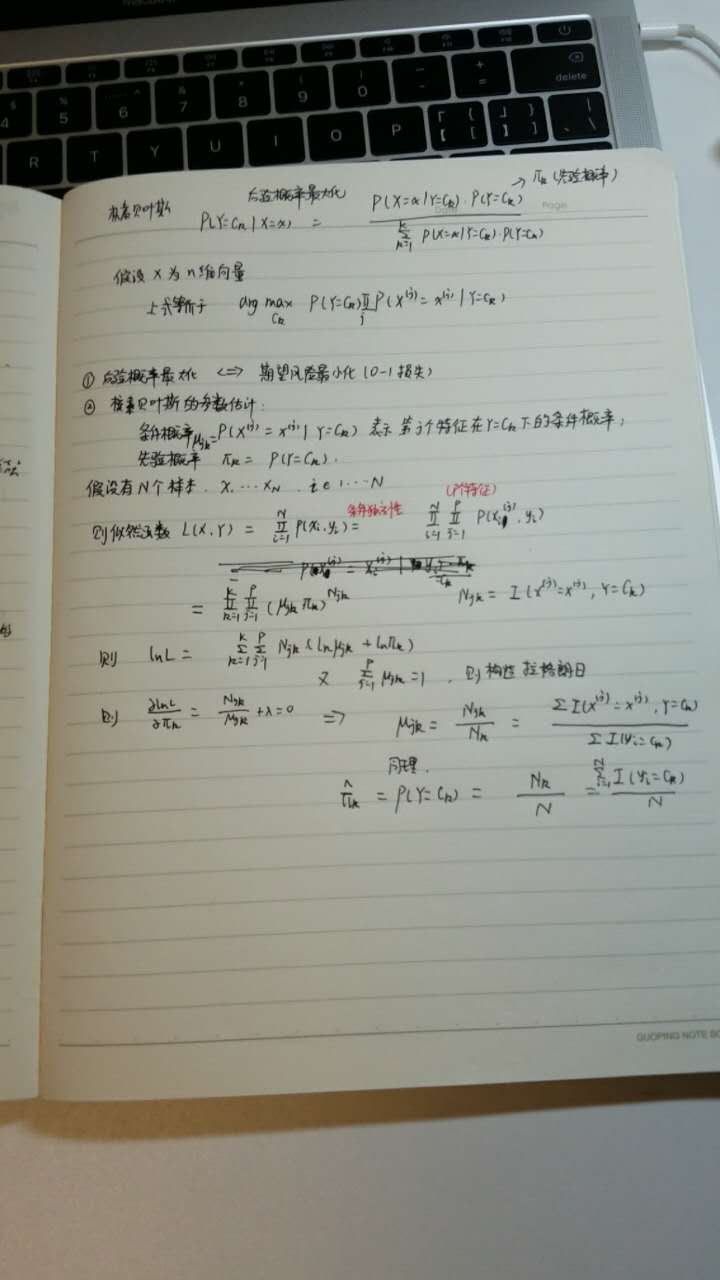 delete
4 % 5 ^ 6 & 7 * 8 ( 9 ) 0 — - + =
R T Y U I O P 「 { [ 」 } ] | \ 、
后验概率最大化 → πk (先验概率)
朴素贝叶斯 P(Y=Ck | X=x) = P(X=x|Y=Ck)·P(Y=Ck) / Σ_{k=1}^{K} P(X=x|Y=Ck)·P(Y=Ck)
Date Page
假设 X 为 n 维向量
上式等价于 arg max_{Ck} P(Y=Ck) ∏_j P(X^{(j)} = x^{(j)} | Y=Ck)
① 后验概率最大化 <=> 期望风险最小化 (0-1 损失)
② 朴素贝叶斯的参数估计:
条件概率 μjk = P(X^{(j)} = x^{(j)} | Y=Ck) 表示 第 j 个特征在 Y=Ck 下的条件概率;
先验概率 πk = P(Y=Ck).
假设有 N 个样本. X1 ... XN . i∈1···N
条件独立性 (P个特征)
则似然函数 L(X,Y) = ∏_{i=1}^{N} P(xi, yi) = ∏_{i=1}^{N} ∏_{j=1}^{P} P(xi^{(j)}, yi)
= ∏_{k=1}^{K} ∏_{j=1}^{P} (μjk πk)^{Njk} Njk = I(x^{(j)}=x^{(j)}, Y=Ck)
则 lnL = Σ_{k=1}^{K} Σ_{j=1}^{P} Njk × (lnμjk + lnπk)
又 Σ_{j=1}^{P} μjk = 1 , 则 构造 拉格朗日
则 ∂lnL/∂πk = Njk/μjk + λ = 0 => μjk = Njk/Nk = ΣI(x^{(j)} = x^{(j)}, Y=Ck) / ΣI(yi=Ck)
同理.
π̂k = P(Y=Ck) = Nk/N = Σ_{i=1}^{N} I(yi=Ck) / N
GUOPING NOTE BO